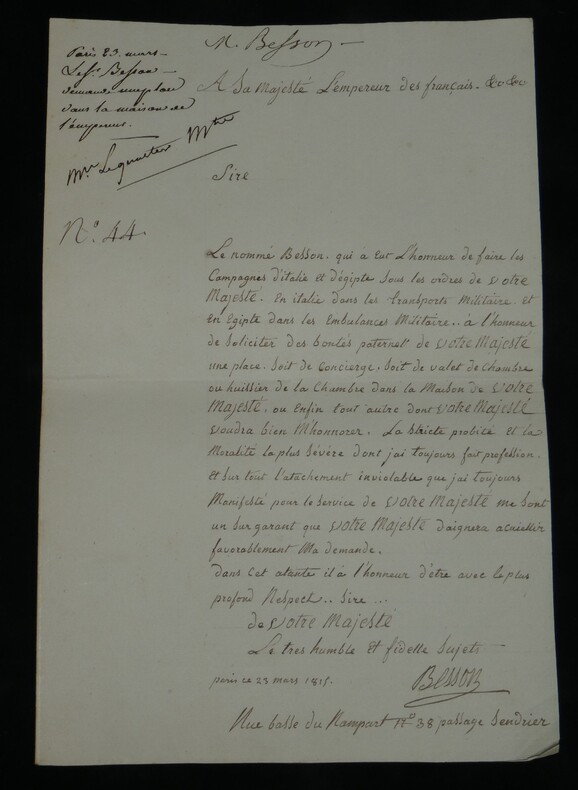 M. Besson
Paris 23. mars
Le Sr. Besson
demande une place
dans la maison de
l'empereur.
Mtre
N°. 44.
A Sa Majesté L'empereur des français. &c &c
Sire
Le nommé Besson. qui a Eut L'honneur de faire les
Campagnes d'italie Et d'égipte sous les ordres de Votre
Majesté. En italie dans les transports Militaire. Et
en Egipte dans les Embulances Militaire.. à l'honneur
de Soliciter des bontés paternel' de Votre Majesté
une place. Soit de Concierge, Soit de valet de Chambre
ou huissier de la Chambre dans la Maison de Votre
Majesté, ou Enfin tout autre dont Votre Majesté
voudra bien M'honnorer. La stricte probité et la
Moralité la plus Sévère dont jai toujours fait profession.
Et sur tout l'atachement inviolable que jai toujours
Manifesté pour le Service de Votre Majesté me sont
un sur garant que Votre Majesté daignera acueillir
favorablement Ma demande.
Dans Cet atante il à l'honneur d'être avec le plus
profond Respect.. Sire...
de Votre Majesté
Le tres humble et fidelle Sujets
paris ce 23 mars 1815.
Besson
Rue basse du Rampart N° 38 passage Sendrier